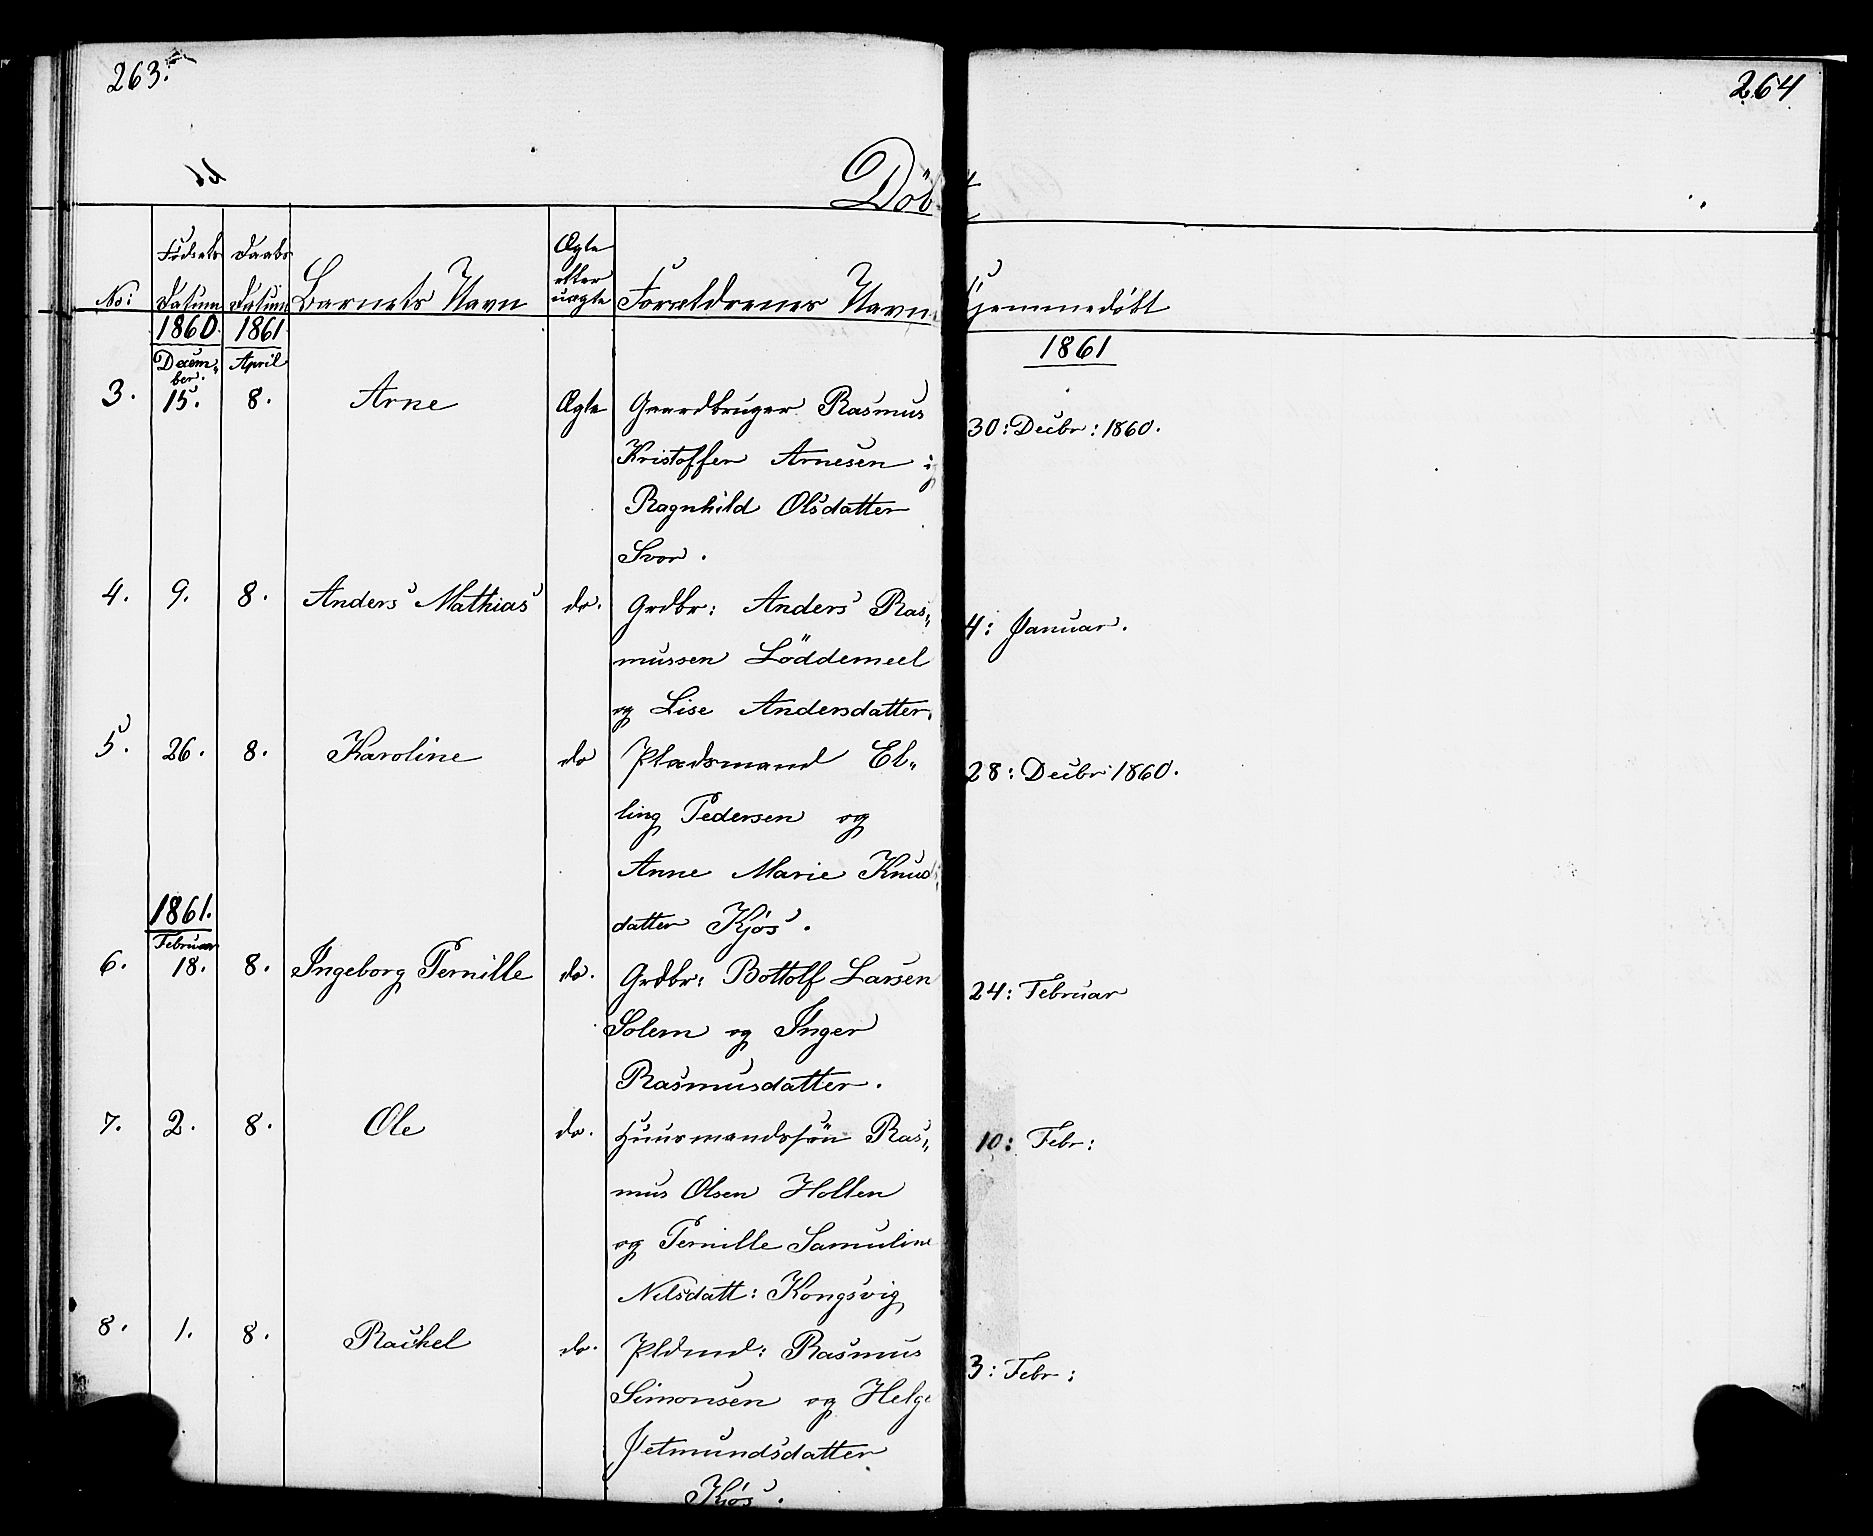 263.
264
Döbt
No:
Fødsels Datum
Daabs Datum
Barnets Navn
Ægte eller uægte
Forældrenes Navn
Hjemmedøbt
1860
1861
1861
Decem-
ber.
April
3. 15. 8. Arne Ægte Gaardbruger Rasmus 30: Decbr: 1860.
Kristoffer Arnesen og
Ragnhild Olsdatter
Svor.
4. 9. 8. Anders Mathias do. Grdbr: Anders Ras- 4: Januar.
mussen Löddemeel
og Lise Andersdatter.
5. 26. 8. Karoline do Pladsmand El- 28: Decbr 1860.
ling Pedersen og
Anne Marie Knuds
datter Kjøs.
1861.
Februar
6. 18. 8. Ingeborg Pernille do. Grdbr: Bottolf Larsen 24: Februar
Solem og Inger
Rasmusdatter.
7. 2. 8. Ole do. Huusmandssön Ras- 10: Febr:
mus Olsen Holten
og Pernille Samuline
Nilsdatt: Kongsvig
8. 1. 8. Rachel do. Pldmd: Rasmus 3: Febr:
Simonsen og Helge
Jetmundsdatter
Kjøs.